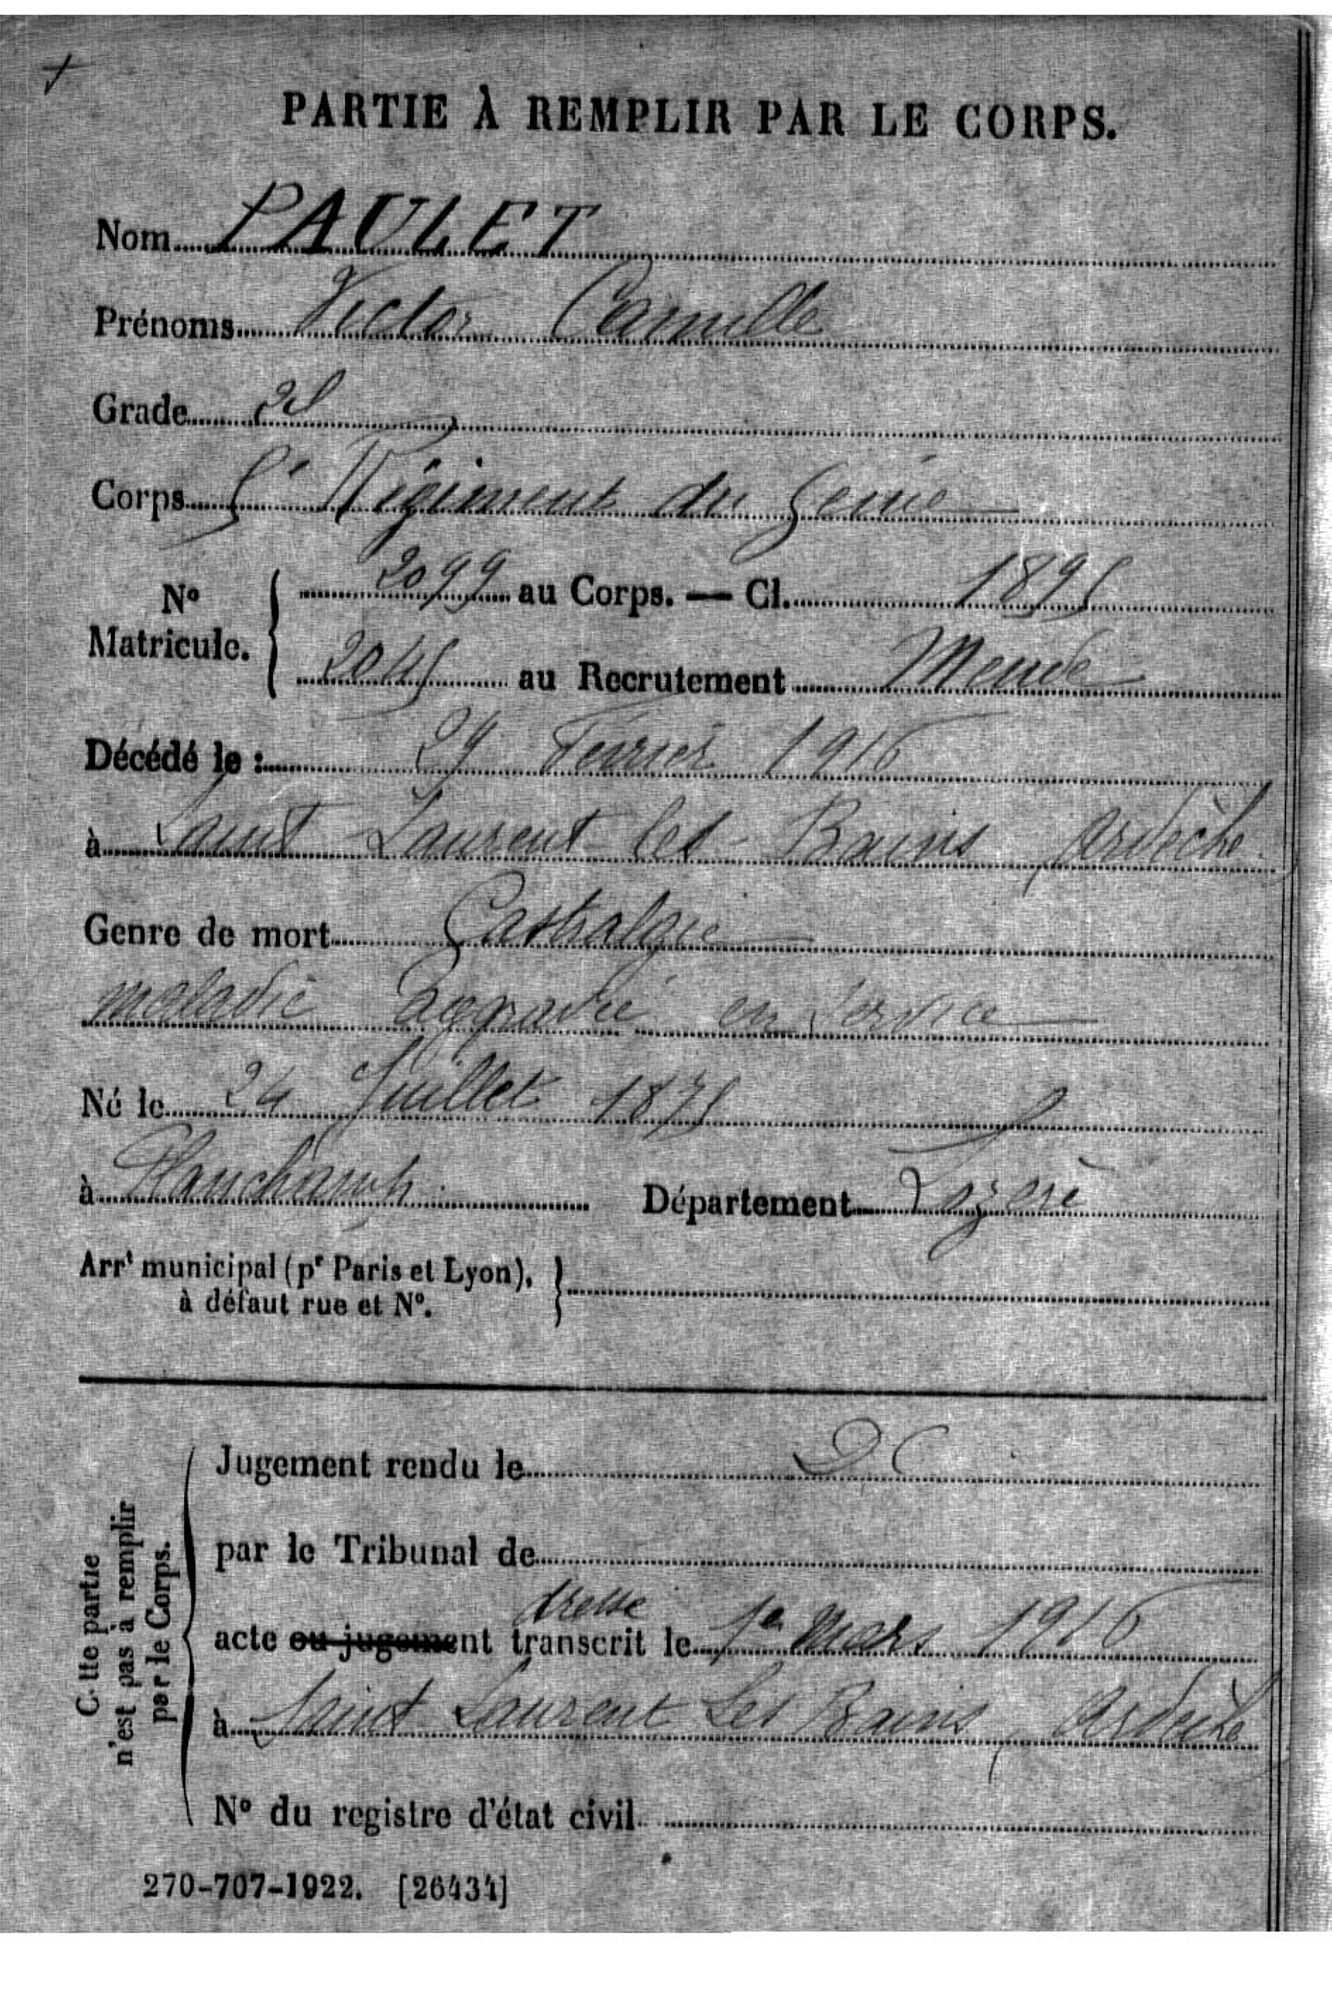 PARTIE À REMPLIR PAR LE CORPS.
Nom PAULET
Prénoms Victor Camille
Grade 2S
Corps 5e Régiment du Génie
No Matricule. 2099 au Corps. — Cl. 1895
2045 au Recrutement Mende
Décédé le : 29 Février 1916
à Saint Laurent les Bains Ardèche
Genre de mort Gastralgie
maladie aggravée en service
Né le 24 Juillet 1875
à Planchamp Département Lozère
Arrt municipal (pr Paris et Lyon),
à défaut rue et No.
Cette partie
n'est pas à remplir
par le Corps.
Jugement rendu le
par le Tribunal de
dressé
acte ou jugement transcrit le 1e Mars 1916
à Saint Laurent Les Bains, Ardèche
No du registre d'état civil
270-707-1922. [26434]